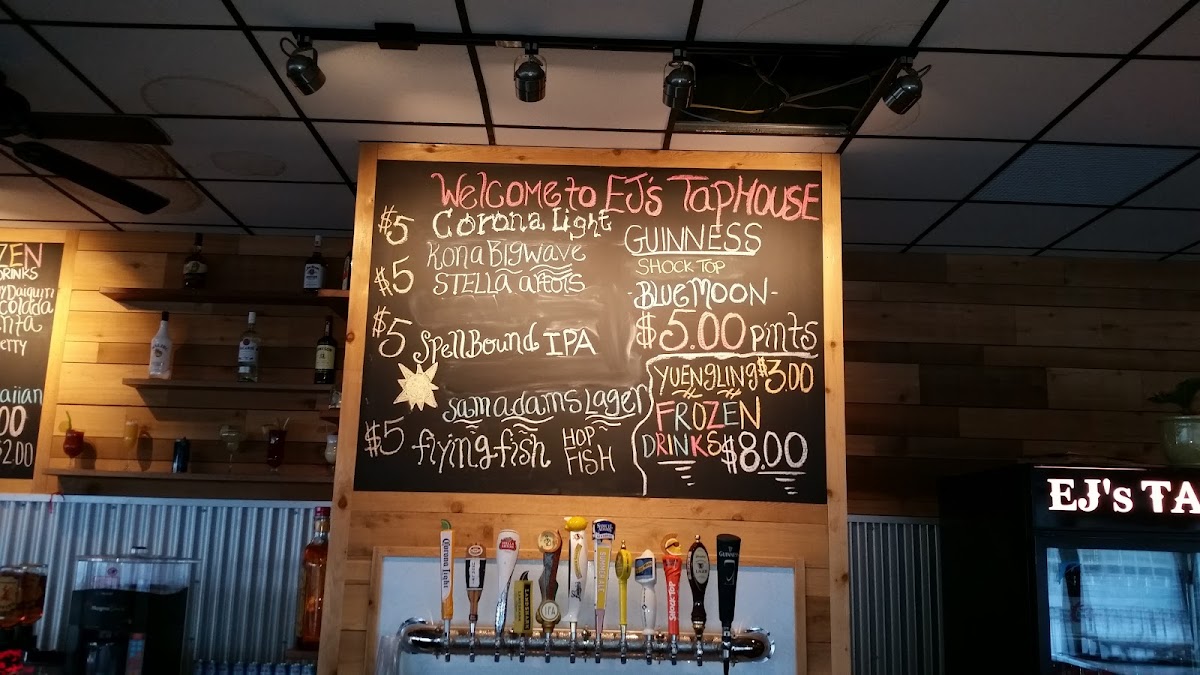 Welcome to EJ's TapHOUSE
$5 Corona Light
Kona Bigwave
$5 STELLA artois
$5 SpellBound IPA
Sam adams Lager
$5 flying-fish HOP FISH
GUINNESS
SHOCK TOP
-BLUE MOON-
$5.00 pints
YUENGLING $3.00
FROZEN
DRINKS $8.00
ZEN
DRINKS
Daiquiri
Colada
aiian
00
$2.00
Corona Light
SHOCK TOP
GUINNESS
IPA
EJ's TA